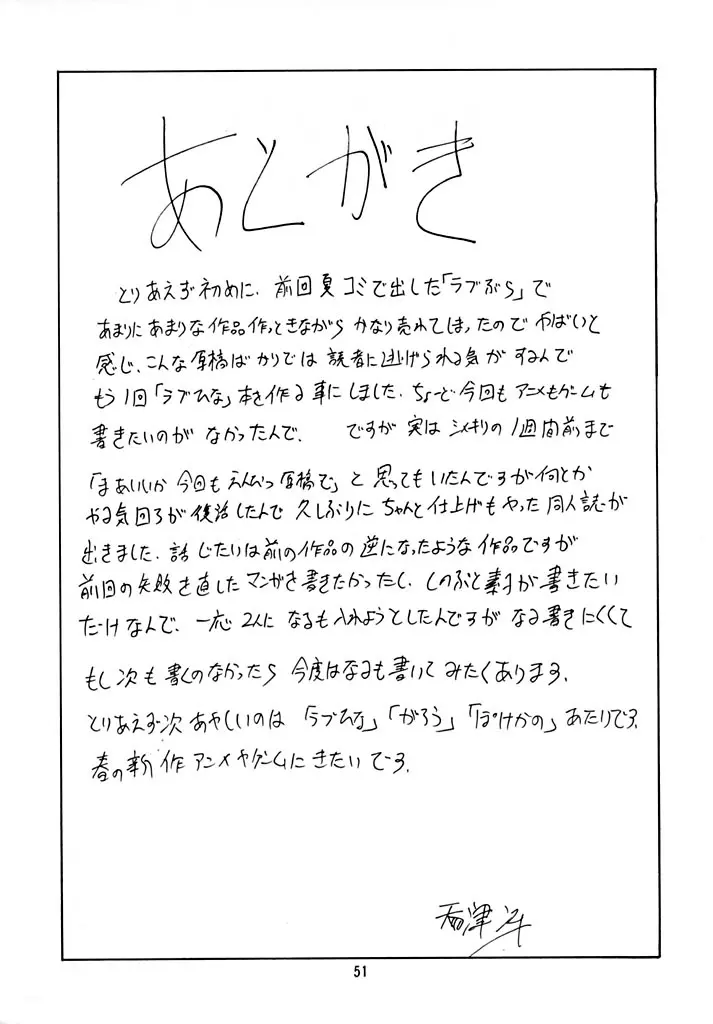 あとがき
とりあえず初めに、前回夏コミで出した「ラブぶら」で
あまりにあまりな作品作っときながら かなり売れてしまったので やばいと
感じ、こんな原稿ばかりでは 読者に逃げられる気が するんで
もう1回「ラブひな」本を作る事にしました。ちょーど今回も アニメもゲームも
書きたいのが なかったんで、 ですが 実は シメキリの 1週間前まで
「まあいいか 今回も えんぴつ原稿で」と 思ってもいたんですが何とか
やる気回路が 復活したんで 久しぶりに ちゃんと仕上げもやった 同人誌が
出きました。話じたいは前の作品の逆になったような作品ですが
前回の失敗を直したマンガを書きたかったし、しのぶと素子が書きたい
だけなんで、一応 2人に なるも入れようとしたんですが なる書きにくくて
もし次も書くのなかったら 今度はなるも書いてみたくあります。
とりあえず次 あやしいのは「ラブひな」「がろう」「ぽけかの」あたりです。
春の新作アニメやゲームにきたいです。
51